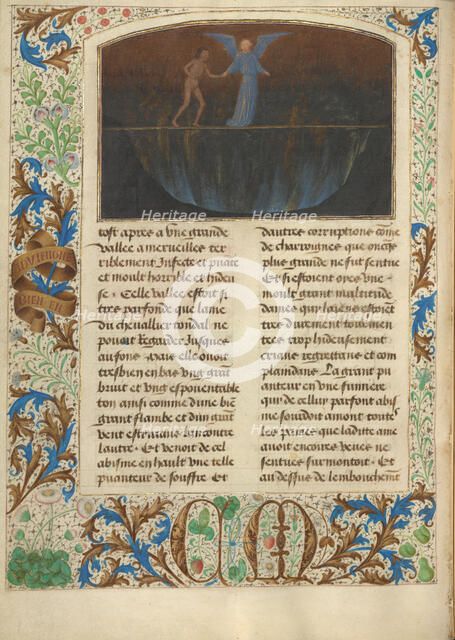 tost apres a vne grande
vallee a merueilles ter
riblement Infecte et puate
et moult horrible et hideu
se · Celle vallee estoit si
tres parfonde que lame
du cheuallier tondal ne
pouoit regarder Jusques
au fons · Mais elle ouoit
tresbien en bas vng grāt
bruit et vng espouentable
ton ainsi comme dune biē
grant flambe et dun grāt
vent estriuans lun contre
lautre · Et venoit de cel
abisme en hault vne telle
puanteur de souffre · Et
dautres corruptions cōme
de charrongnes que oncqs
plus grande ne fut sentue
Et si estoient ores vne
moult grant multitude
dames qui leans estoiēt
tres durement tourmen
tees trop hideusement
crians regrettans et com
plaindans · La grant pu
anteur en vne fumiere
qui de cellui parfont abis
me sourdoit amont toutes
les paines que laditte ame
auoit encores veues ne
sentues surmontoit · Et
au dessus de lembouchemt̄
BIEN EN
ADVIENGNE
C M
Heritage